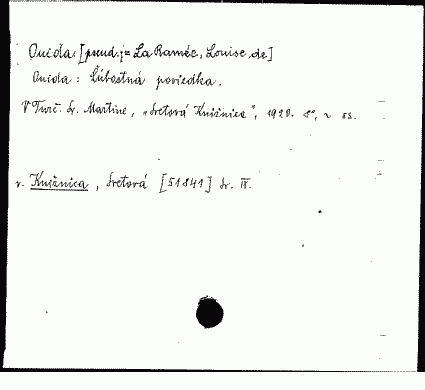 Ouida [pseud.j= La Ramée, Louise de]
Ouida : Ľúbostná poviedka.
V Turč. Sv. Martine, „Svetová Knižnica", 1920. 8°, 2 53.
v. Knižnica, Svetová [51841] Sv. IV.